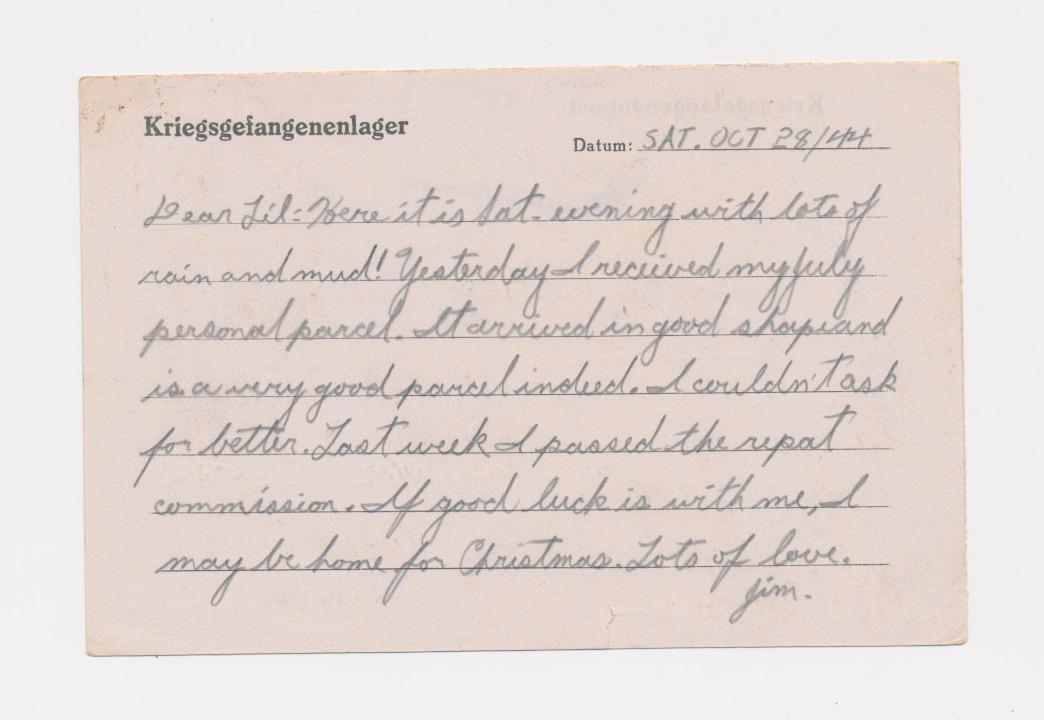 Kriegsgefangenenlager
Datum: SAT. OCT 28/44
Dear Lil:- Here it is Sat. evening with lots of
rain and mud! Yesterday I received my July
personal parcel. It arrived in good shape and
is a very good parcel indeed. I couldn't ask
for better. Last week I passed the repat
commission. If good luck is with me, I
may be home for Christmas. Lots of love.
Jim.